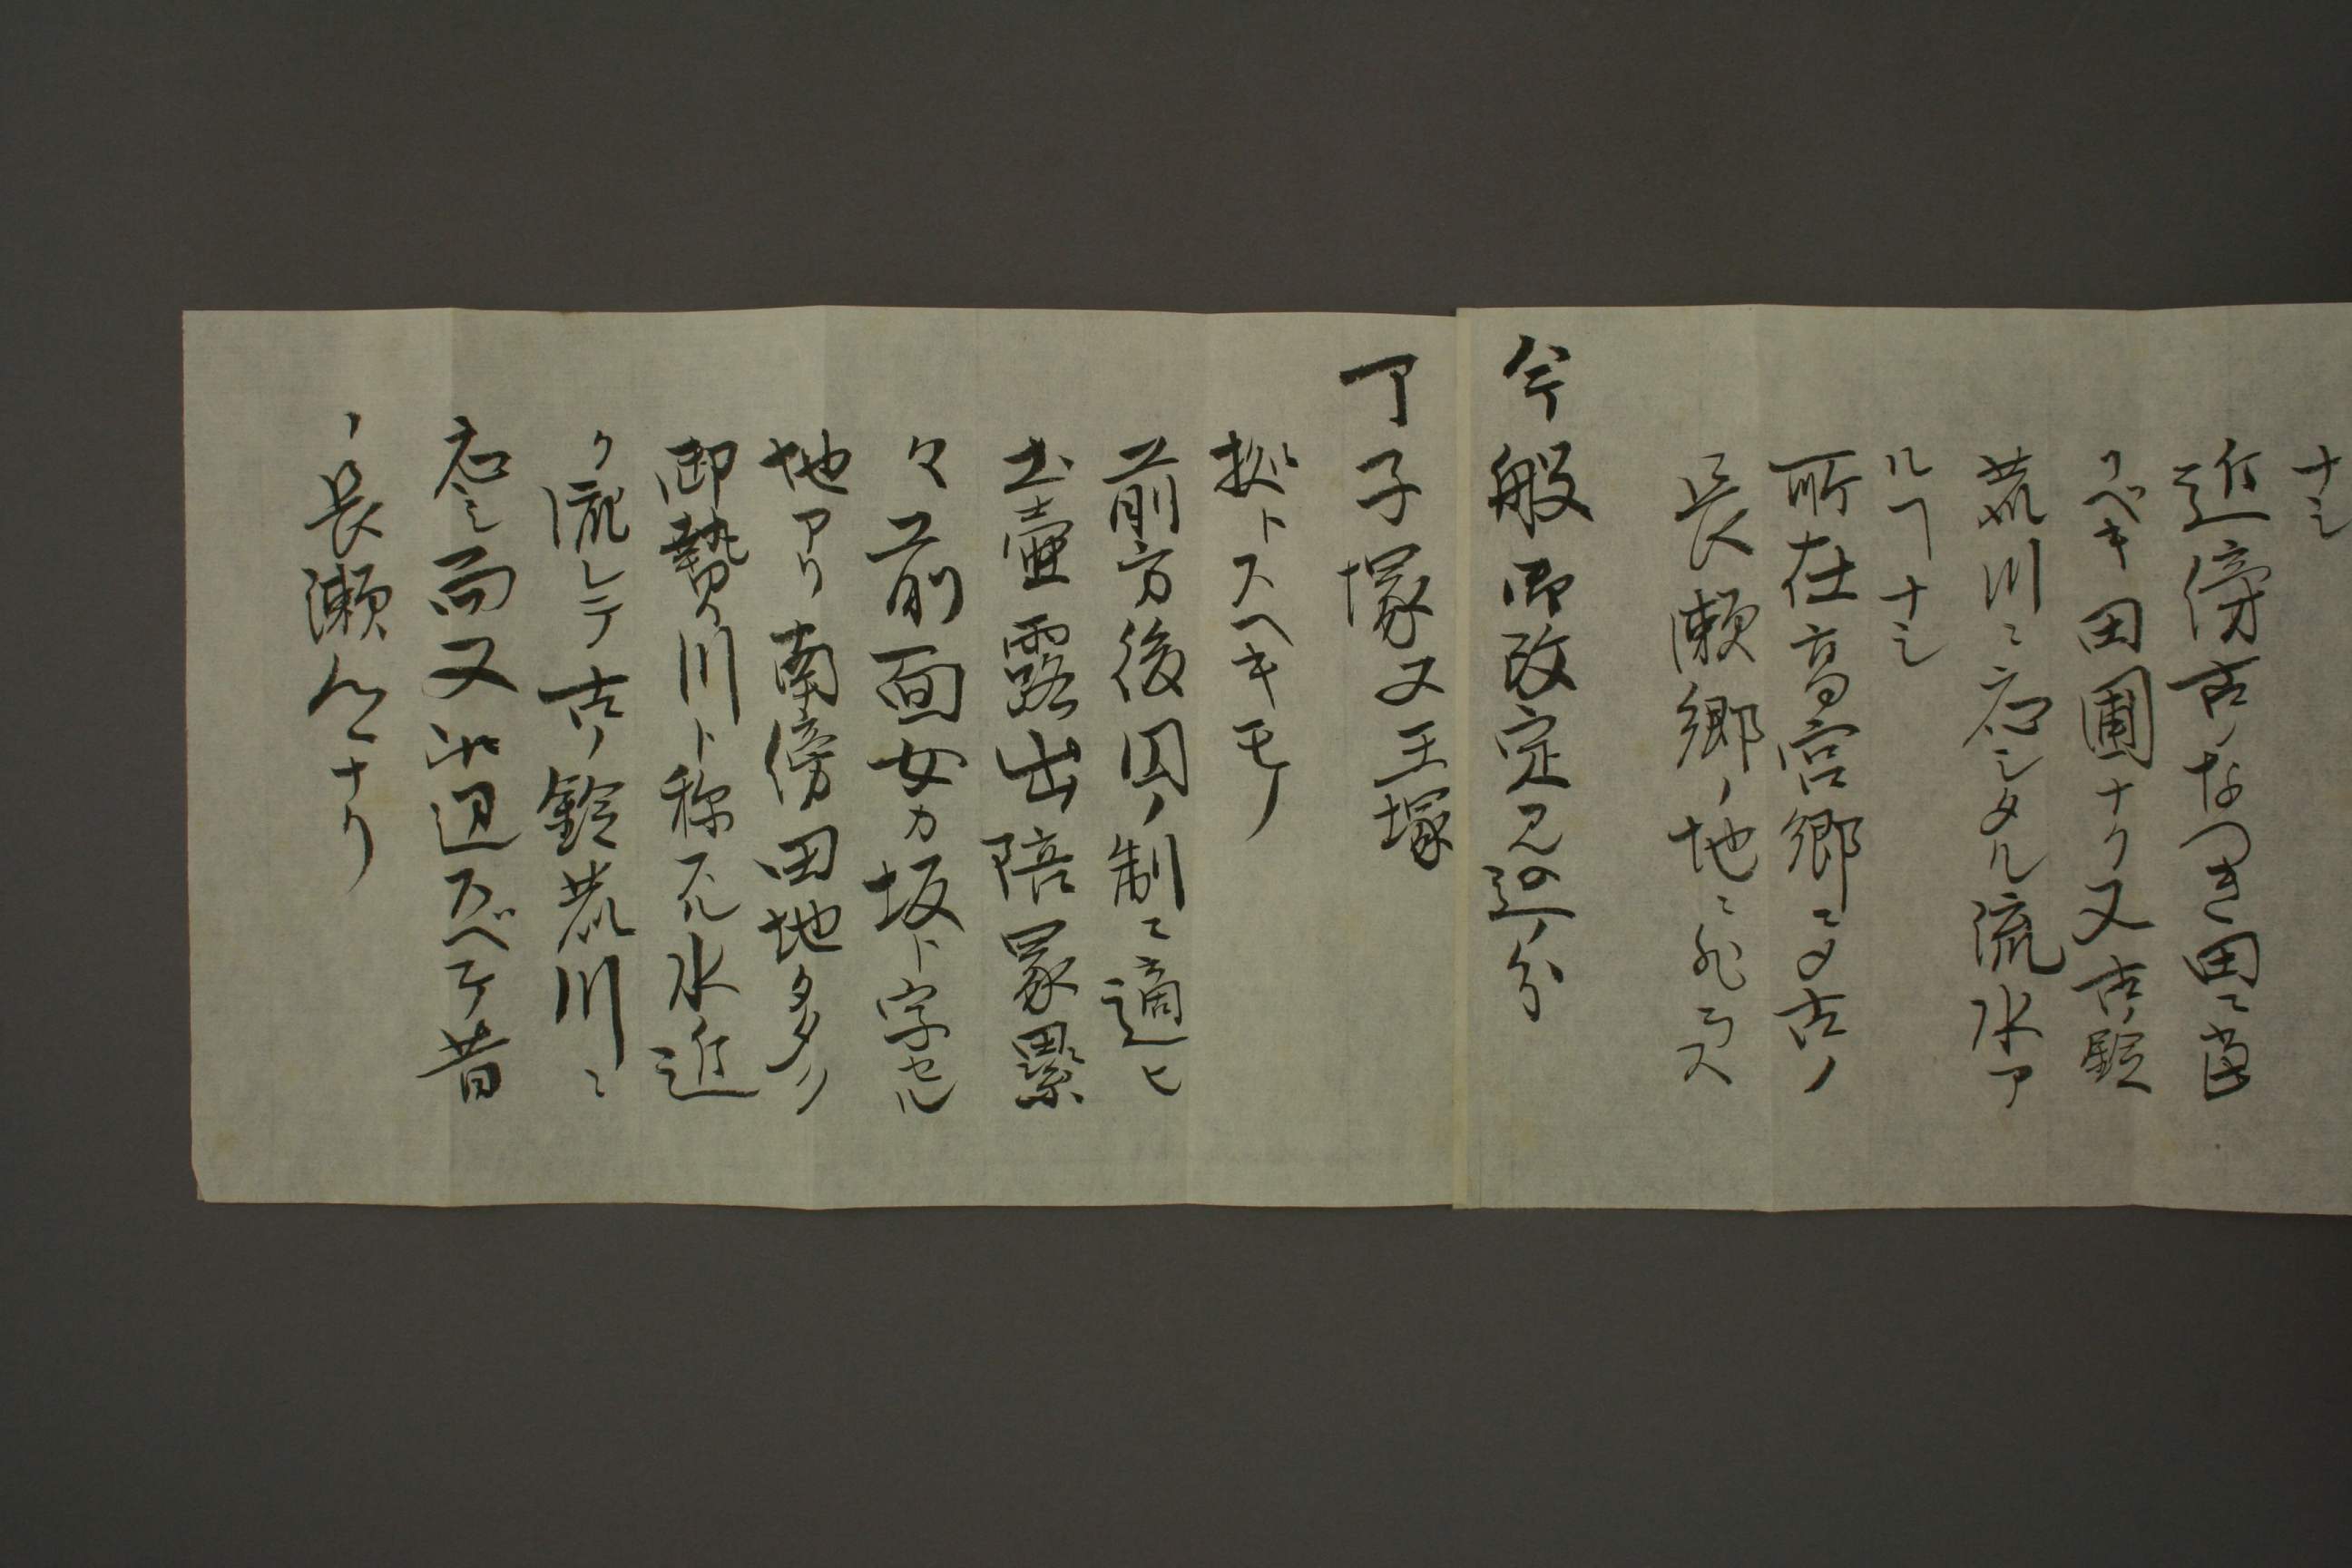 ナシ
近傍古ノなつき田ニ当
ルベキ田圃ナク又古ノ鈴
荒川ニ応シタル流水ア
ルヿナシ
所在高宮郷ニ〆古ノ
長瀬郷ノ地ニ非ラス
今般御改定見込ノ分
丁子塚又王塚
拠トスヘキモノ
前方後円ノ制ニ適ヒ
土壷露出陪冢累
々前面女カ坂ト字セル
地アリ南傍田地多ク
御贄川ト称スル水近
ク流レテ古ノ鈴荒川ニ
応シ而又此辺スベテ昔
ノ長瀬ナリ